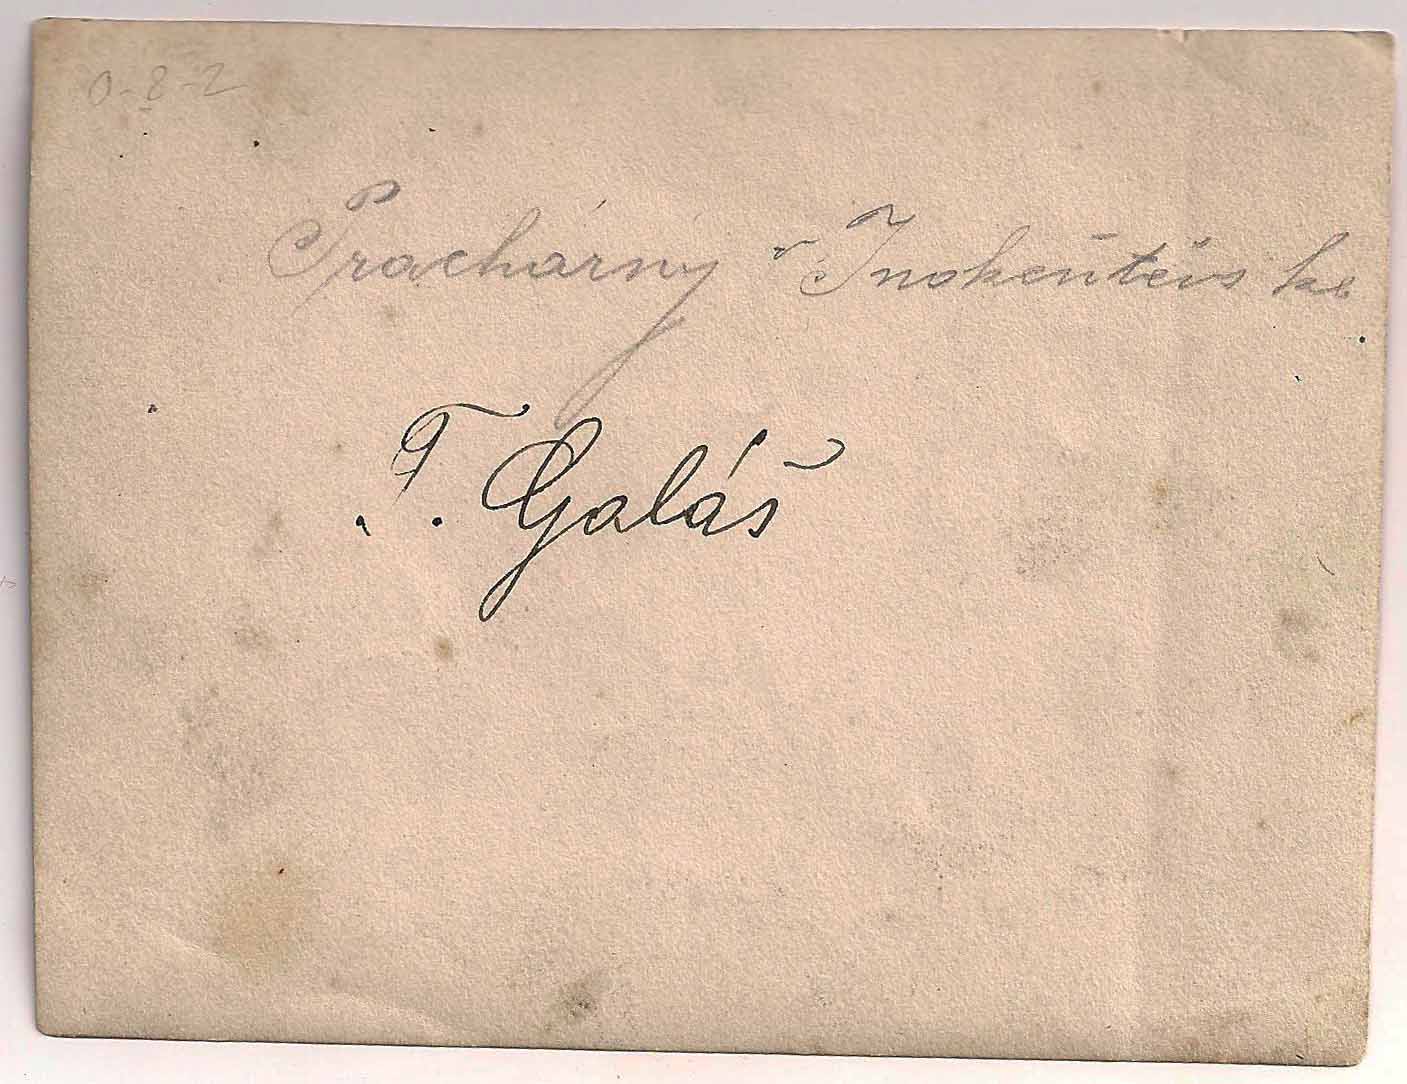 0-8-2
Prachárny v Inokentěvs ke
F. Galáš